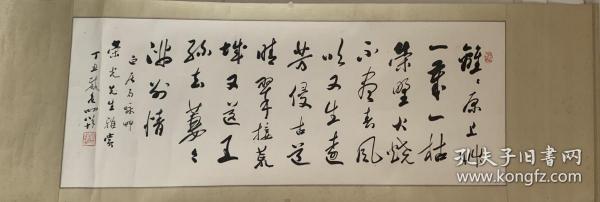 離〻原上艸
一歲一枯
榮野火燒
不盡春風
吹又生遠
芳侵古道
晴翠接荒
城又送王
孫去萋〻
滿別情
白居易
榮光先生雅賞
丁丑
孔夫子旧书网
www.kongfz.com